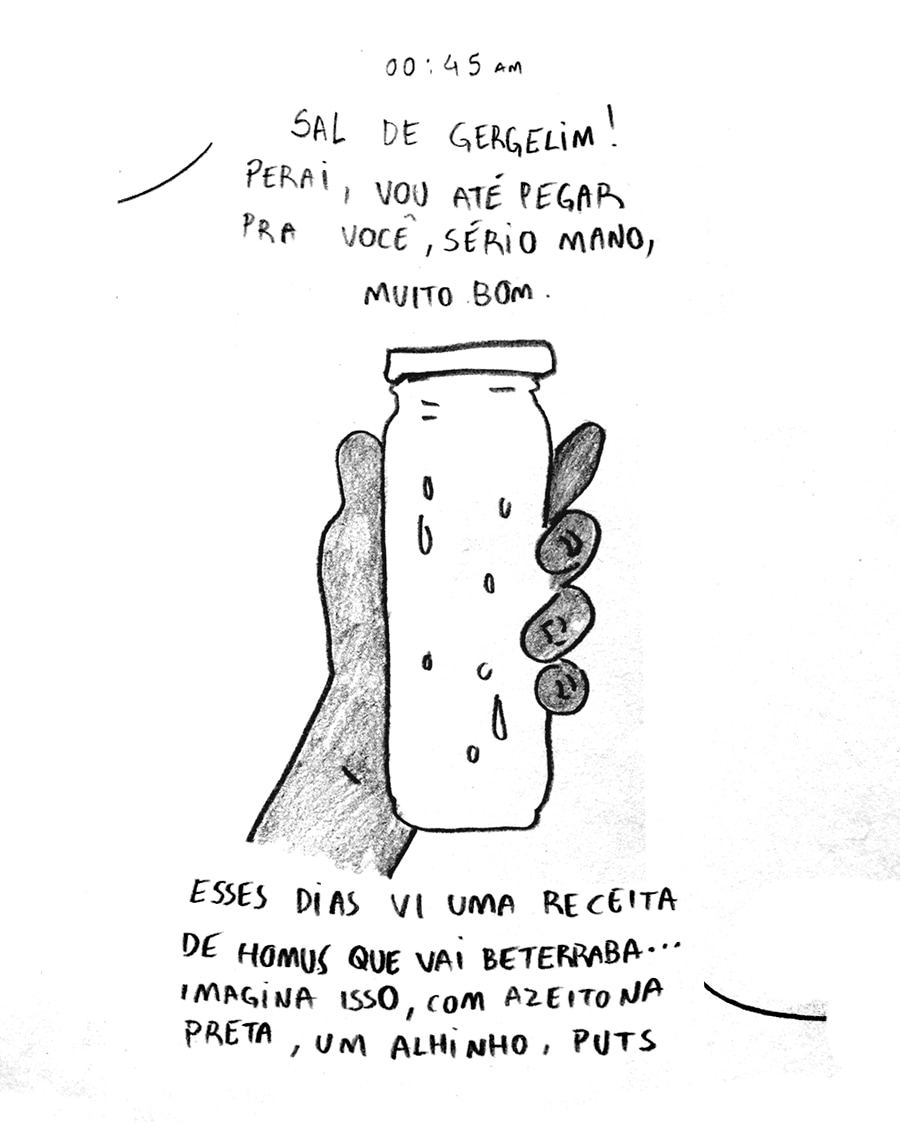 00:45 AM
SAL DE GERGELIM!
PERAI, VOU ATÉ PEGAR
PRA VOCÊ, SÉRIO MANO,
MUITO BOM.
ESSES DIAS VI UMA RECEITA
DE HOMUS QUE VAI BETERRABA...
IMAGINA ISSO, COM AZEITONA
PRETA, UM ALHINHO, PUTS